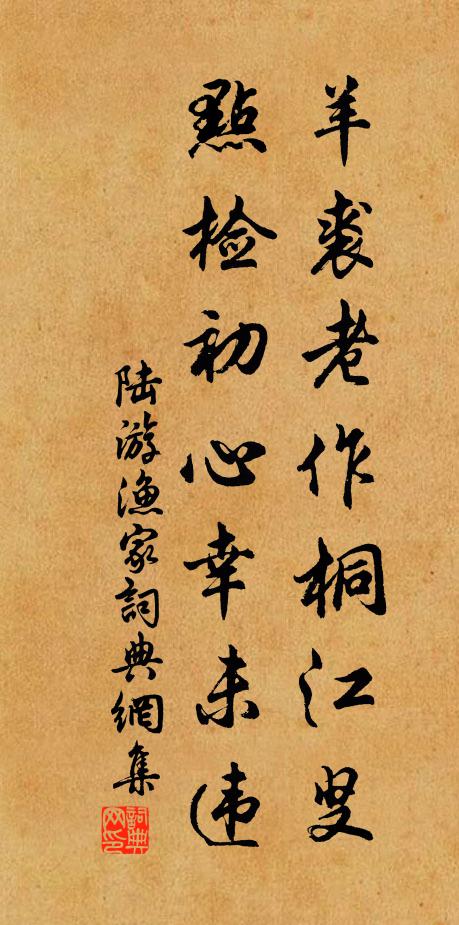 羊裘老作桐江叟
點檢初心幸未违
陆游漁家詞典網集
詞典网印